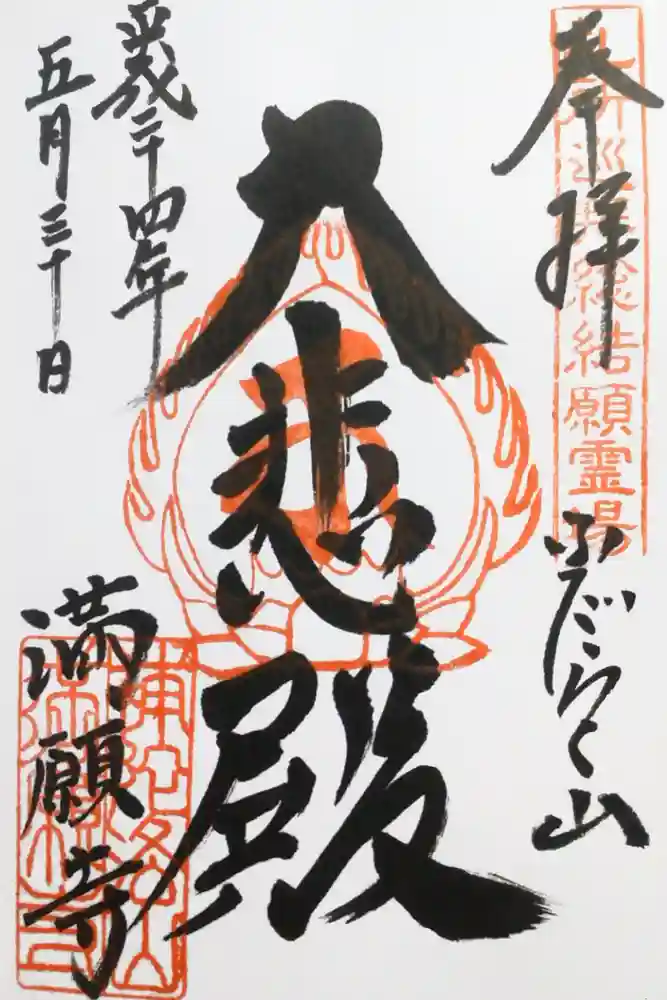 奉拝
総結願霊場
ふだらく山
大悲殿
平成二十四年
五月三十日
満願寺